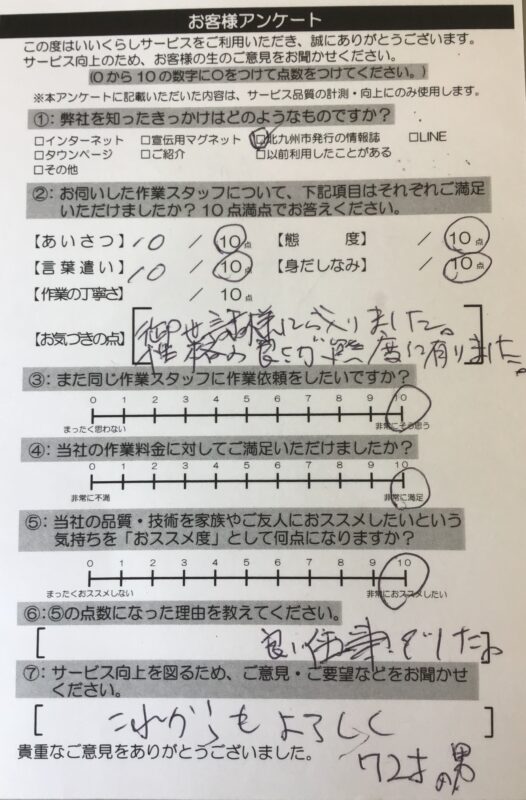 お客様アンケート
この度はいいくらしサービスをご利用いただき、誠にありがとうございます。
サービス向上のため、お客様の生のご意見をお聞かせください。
(0から10の数字に○をつけて点数をつけてください。)
※本アンケートに記載いただいた内容は、サービス品質の計測・向上にのみ使用します。
①：弊社を知ったきっかけはどのようなものですか？
□インターネット □宣伝用マグネット □北九州市発行の情報誌 □LINE
□タウンページ □ご紹介 □以前利用したことがある
□その他
②：お伺いした作業スタッフについて、下記項目はそれぞれご満足
いただけましたか？10点満点でお答えください。
【あいさつ】 10 / 10点 【態度】 / 10点
【言葉遣い】 10 / 10点 【身だしなみ】 / 10点
【作業の丁寧さ】 / 10点
【お気づきの点】 御世話様に成りました。
性格の良さが態度に有りました。
③：また同じ作業スタッフに作業依頼をしたいですか？
0 1 2 3 4 5 6 7 8 9 10
まったく思わない 非常にそう思う
④：当社の作業料金に対してご満足いただけましたか？
0 1 2 3 4 5 6 7 8 9 10
非常に不満 非常に満足
⑤：当社の品質・技術を家族やご友人におススメしたいという
気持ちを「おススメ度」として何点になりますか？
0 1 2 3 4 5 6 7 8 9 10
まったくおススメしない 非常におススメしたい
⑥：⑤の点数になった理由を教えてください。
良い仕事でした。
⑦：サービス向上を図るため、ご意見・ご要望などをお聞かせ
ください。
これからもよろしく
貴重なご意見をありがとうございました。
72才の男